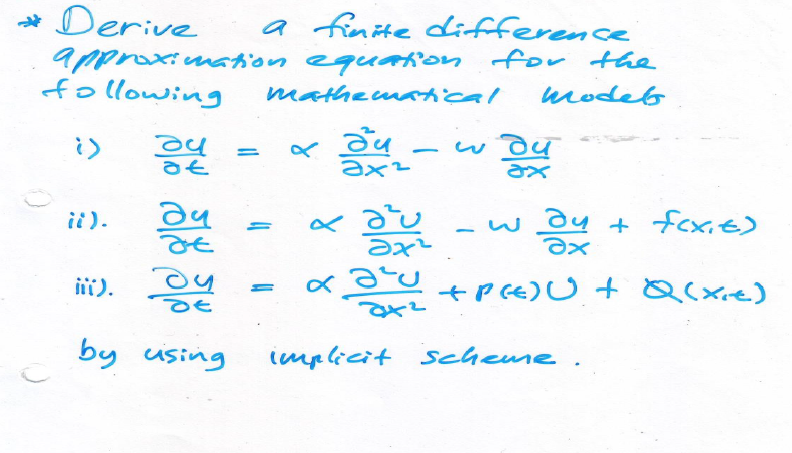 * Derive a finite difference
approximation equation for the
following mathematical models
i) ∂u/∂t = α ∂²u/∂x² - w ∂u/∂x
ii). ∂u/∂t = α ∂²U/∂x² - w ∂u/∂x + f(x,t)
iii). ∂u/∂t = α ∂²U/∂x² + P(t)U + Q(x,t)
by using implicit scheme.